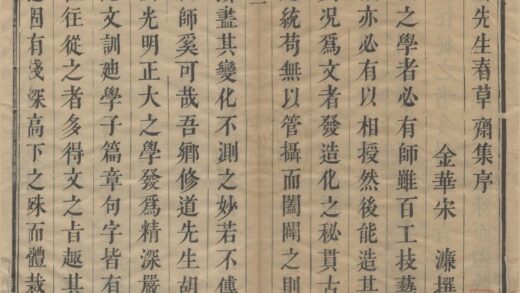 先生春草齋集序
金華宋　濂撰
之學者必有師雖百工技藝
亦必有以相授然後能造其
況爲文者發造化之秘貫古
統苟無以管攝而闔闢之則
盡其變化不測之妙若不傳
師奚可哉吾鄉修道先生胡
光明正大之學發爲精深嚴
文訓廸學子篇章句字皆有
往從之者多得文之旨趣其
固有淺深高下之殊而體裁